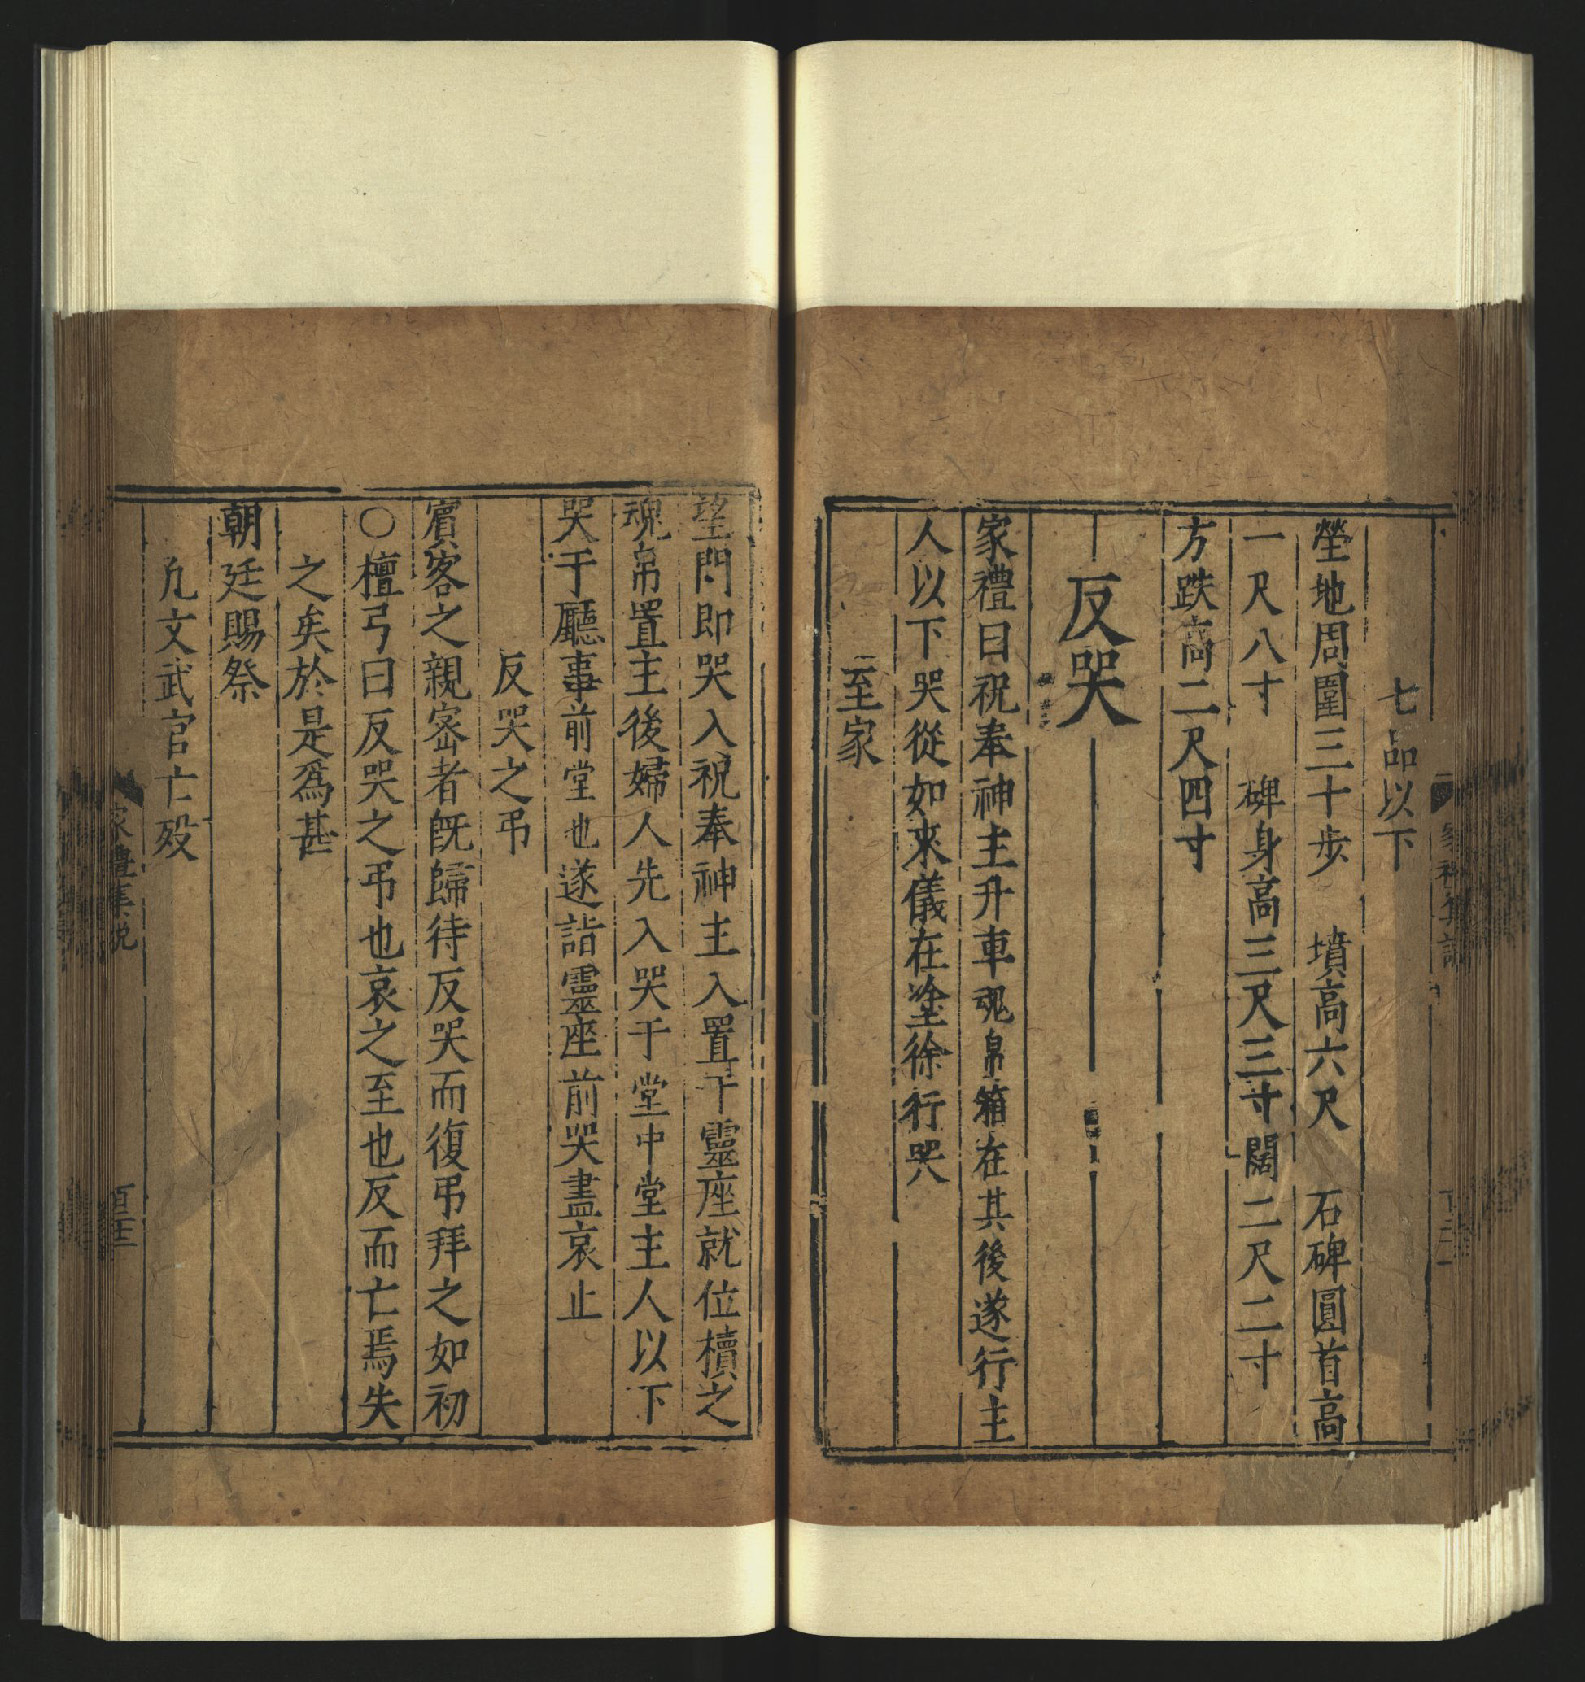 七品以下
塋地周圍三十步 墳高六尺 石碑圓首高
一尺八寸 碑身高三尺三寸闊二尺二寸
方趺高二尺四寸
反哭
家禮曰祝奉神主升車魂帛箱在其後遂行主
人以下哭從如來儀在塗徐行哭
至家
望門即哭入祝奉神主入置于靈座就位櫝之
魂帛置主後婦人先入哭于堂中堂主人以下
哭于廳事前堂也遂詣靈座前哭盡哀止
反哭之弔
賓客之親宻者旣歸待反哭而復弔拜之如初
○檀弓曰反哭之弔也哀之至也反而亡焉失
之矣於是爲甚
朝廷賜祭
凡文武官亡歿
家禮集說